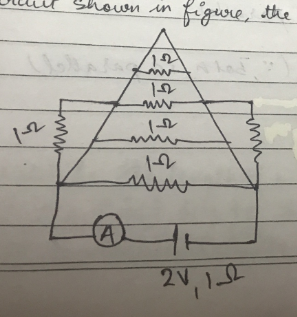 circuit shown in figure, the
1Ω
1Ω
1Ω
1Ω
1Ω
A
2V, 1Ω